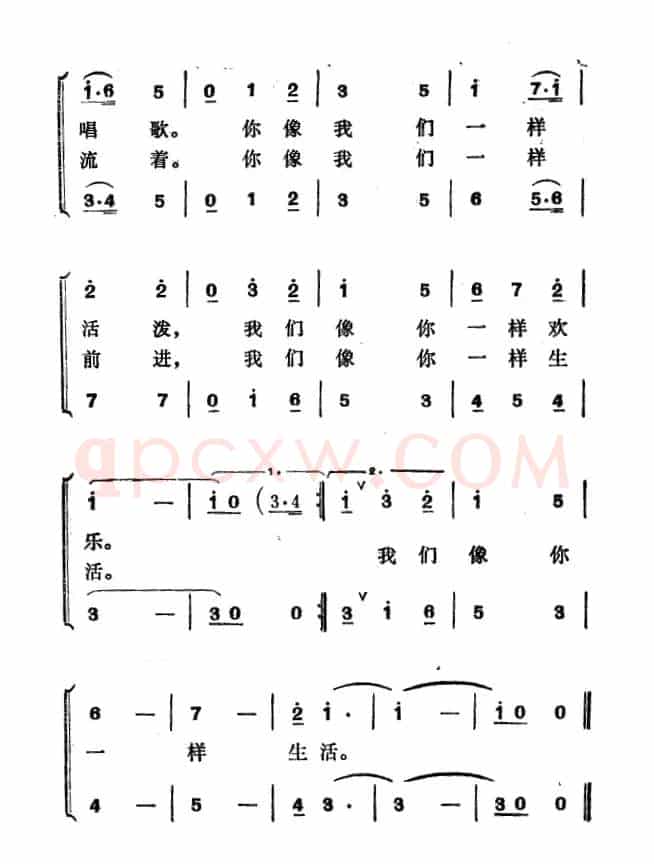 i·6 5 | 0 1 2 | 3 5 | i 7·i |
唱歌。 你像我 们 一 样
流着。 你像我 们 一 样
3·4 5 | 0 1 2 | 3 5 | 6 5·6 |
2̇ 2̇ | 0 3̇ 2̇ | i 5 | 6 7 2̇ |
活 泼, 我们像 你 一样欢
前 进, 我们像 你 一样生
7 7 | 0 i 6 | 5 3 | 4 5 4 |
qpcxw.COM
1. 2.
i — | i 0 (3·4 :‖ i ∨ 3̇ 2̇ | i 5
乐。
活。 我们像 你
3 — | 3 0 0 :‖ 3 ∨ i 6 | 5 3
6 — | 7 — | 2̇ i· | i — | i 0 0 ‖
一 样 生活。
4 — | 5 — | 4 3· | 3 — | 3 0 0 ‖